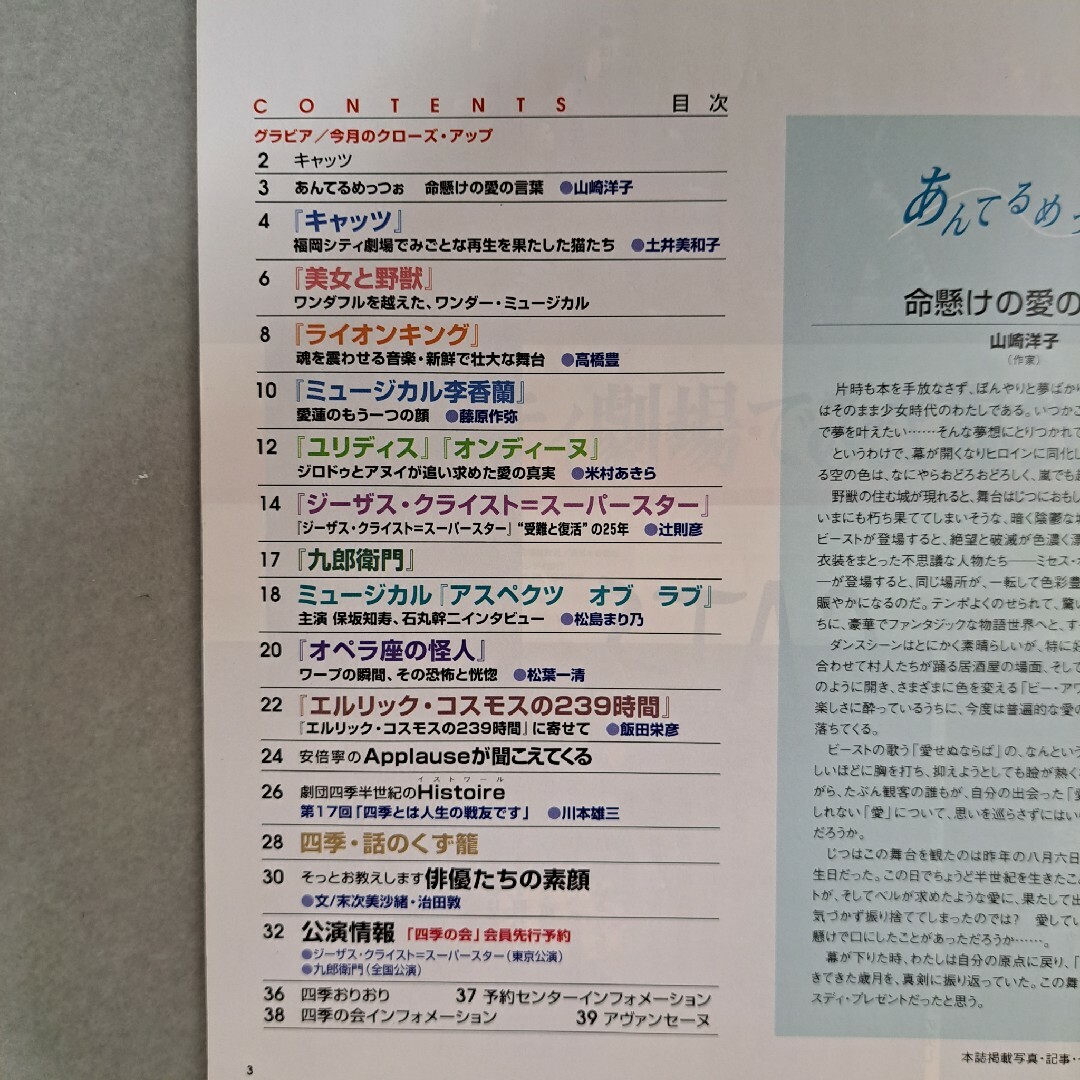 CONTENTS 目次
グラビア／今月のクローズ・アップ
2 キャッツ
3 あんてるめっつぉ 命懸けの愛の言葉 ●山崎洋子
4 『キャッツ』
福岡シティ劇場でみごとな再生を果たした猫たち ●土井美和子
6 『美女と野獣』
ワンダフルを越えた、ワンダー・ミュージカル
8 『ライオンキング』
魂を震わせる音楽・新鮮で壮大な舞台 ●高橋豊
10 『ミュージカル李香蘭』
愛蓮のもう一つの顔 ●藤原作弥
12 『ユリディス』『オンディーヌ』
ジロドゥとアヌイが追い求めた愛の真実 ●米村あきら
14 『ジーザス・クライスト=スーパースター』
『ジーザス・クライスト=スーパースター』“受難と復活”の25年 ●辻則彦
17 『九郎衛門』
18 ミュージカル『アスペクツ オブ ラブ』
主演 保坂知寿、石丸幹二インタビュー ●松島まり乃
20 『オペラ座の怪人』
ワープの瞬間、その恐怖と恍惚 ●松葉一清
22 『エルリック・コスモスの239時間』
『エルリック・コスモスの239時間』に寄せて ●飯田栄彦
24 安倍寧のApplauseが聞こえてくる
イストワール
26 劇団四季半世紀のHistoire
第17回「四季とは人生の戦友です」 ●川本雄三
28 四季・話のくず籠
30 そっとお教えします俳優たちの素顔
●文/末次美沙緒・治田敦
32 公演情報 「四季の会」会員先行予約
●ジーザス・クライスト=スーパースター（東京公演）
●九郎衛門（全国公演）
36 四季おりおり 37 予約センターインフォメーション
38 四季の会インフォメーション 39 アヴァンセーヌ
3
あんてるめっ
命懸けの愛の
山崎洋子
（作家）
片時も本を手放なさず、ぼんやりと夢ばかり
はそのまま少女時代のわたしである。いつかこ
で夢を叶えたい……そんな夢想にとりつかれて
というわけで、幕が開くなりヒロインに同化し
る空の色は、なにやらおどろおどろしく、嵐でも
野獣の住む城が現れると、舞台はじつにおもし
いまにも朽ち果ててしまいそうな、暗く陰鬱な
ビーストが登場すると、絶望と破滅が色濃く漂
衣装をまとった不思議な人物たち――ミセス・
―が登場すると、同じ場所が、一転して色彩豊
賑やかになるのだ。テンポよくのせられて、驚
ちに、豪華でファンタジックな物語世界へと、す
ダンスシーンはとにかく素晴らしいが、特に好
合わせて村人たちが踊る居酒屋の場面、そして
のように開き、さまざまに色を変える「ビー・アワ
楽しさに酔っているうちに、今度は普遍的な愛の
落ちてくる。
ビーストの歌う「愛せぬならば」の、なんという
しいほどに胸を打ち、抑えようとしても瞼が熱く
がら、たぶん観客の誰もが、自分の出会った「愛
しれない「愛」について、思いを巡らさずにはい
だろうか。
じつはこの舞台を観たのは昨年の八月六日
生日だった。この日でちょうど半世紀を生きたこ
トが、そしてベルが求めたような愛に、果たして出
気づかず振り捨ててしまったのでは？ 愛してい
懸けで口にしたことがあっただろうか……。
幕が下りた時、わたしは自分の原点に戻り、「
きてきた歳月を、真剣に振り返っていた。この舞
スディ・プレゼントだったと思う。
本誌掲載写真・記事・